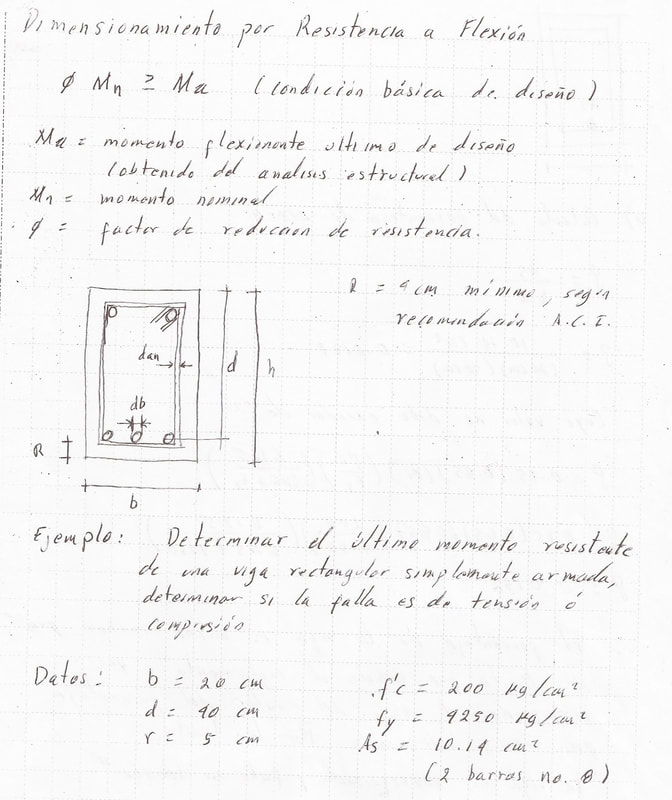 Dimensionamiento por Resistencia a Flexión
ϕ Mn ≥ Mu (condición básica de diseño)
Mu = momento flexionante ultimo de diseño
(obtenido del analisis estructural)
Mn = momento nominal
ϕ = factor de reduccion de resistencia.
R = 4 cm mínimo, segun
recomendación A.C.I.
dan
d
h
db
R
b
Ejemplo: Determinar el último momento resistente
de una viga rectangular simplemente armada,
determinar si la falla es de tensión ó
compresión
Datos: b = 20 cm f'c = 200 kg/cm²
d = 40 cm fy = 4250 kg/cm²
r = 5 cm As = 10.14 cm²
(2 barras no. 8)